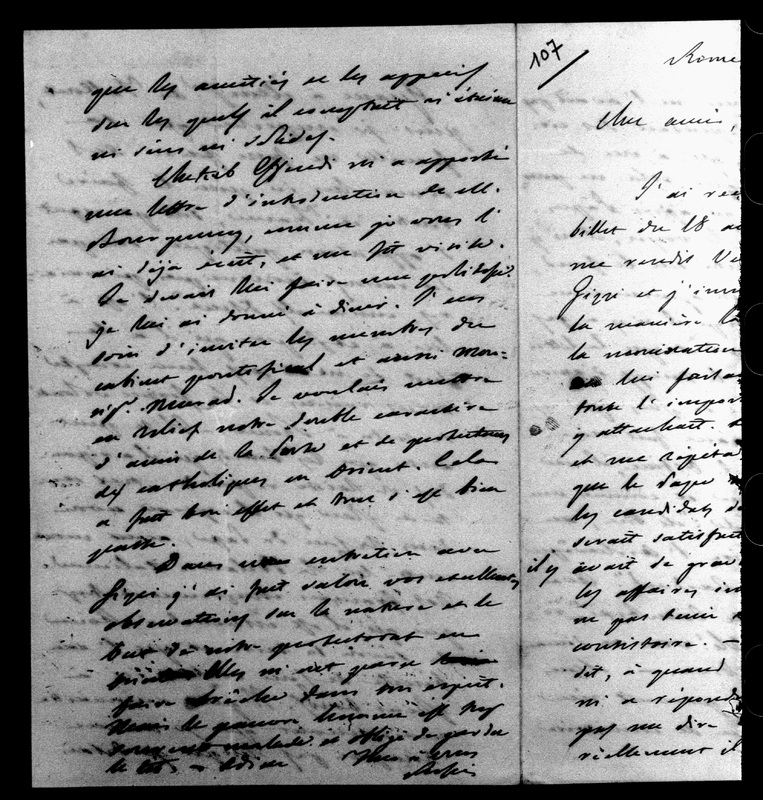 que les amitiés et les appuis
sur lesquels il comptait n'étaient
ni sûrs ni solides.
Chekib Effendi m'a apporté
une lettre d'introduction de M.
Bourqueney, comme je vous l'
ai déjà écrit, et me fit visite.
Je devais lui faire une politesse.
je lui ai donné à diner. J'eus
soin d'inviter les membres du
cabinet pontifical et aussi Mon-
sigr. Murad. Je voulais mettre
en relief notre double caractère
d'amis de la Porte et de protecteurs
des catholiques en Orient. Cela
a fait bon effet et tout s'est bien
passé.
Dans un entretien avec
Gizzi j'ai fait valoir vos excellentes
observations sur la nature et le
but de notre protectorat en
Elles m'ont paru
faire brèche dans son esprit.
Mais le pauvre homme est trop
souvent malade et obligé de garder
le lit. – Adieu Tout à vous
Rossi
107
Rome
Cher ami,
J'ai re
billet du 18 a
me rendis
Gizzi et j'in
la manière
la nomination
lui faisa
toute l'impor
y attachait.
et me répéta
que le Pape
les candidats d
serait satisfait
il y avait de grav
les affaires
ne pas tenir
consistoire. –
dit, à quand
m'a répond
pas me dire
réellement il